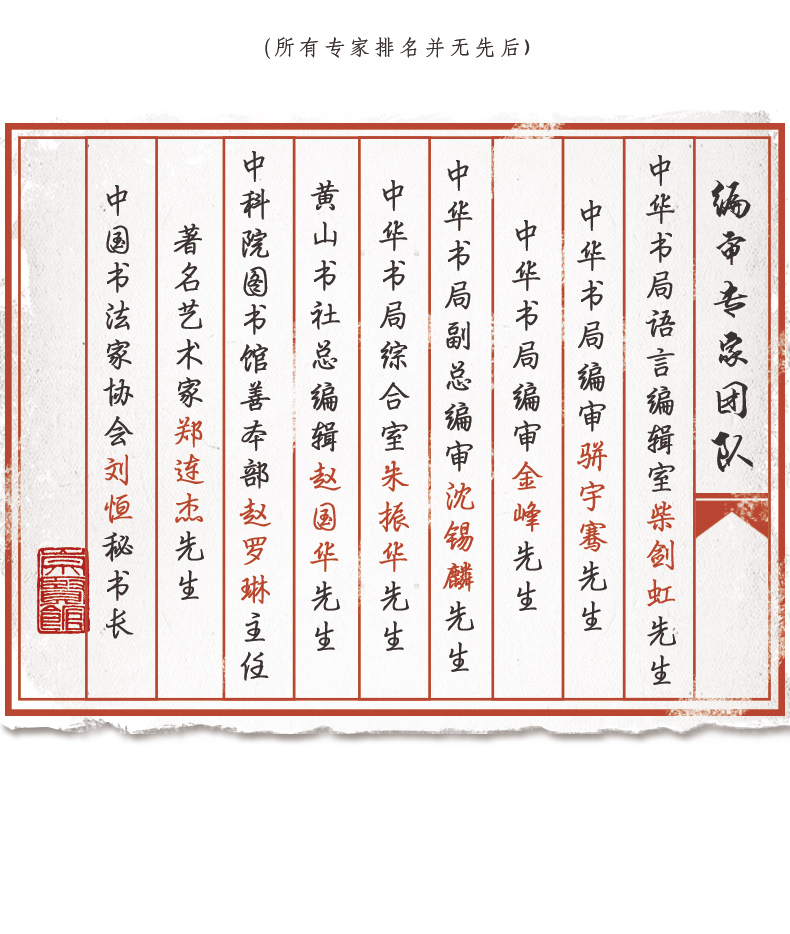 (所有专家排名并无先后)
编审专家团队
中华书局语言编辑室柴剑虹先生
中华书局编审骈宇骞先生
中华书局编审金峰先生
中华书局副总编审沈锡麟先生
中华书局综合室朱振华先生
黄山书社总编辑赵国华先生
中科院图书馆善本部赵罗琳主任
著名艺术家郑连杰先生
中国书法家协会刘恒秘书长
京賓館